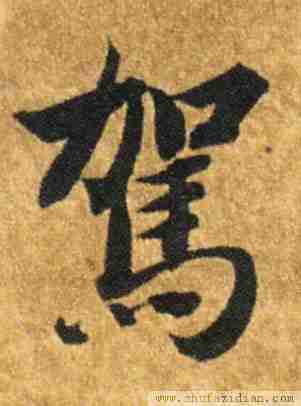 駕
www.shufazidian.com